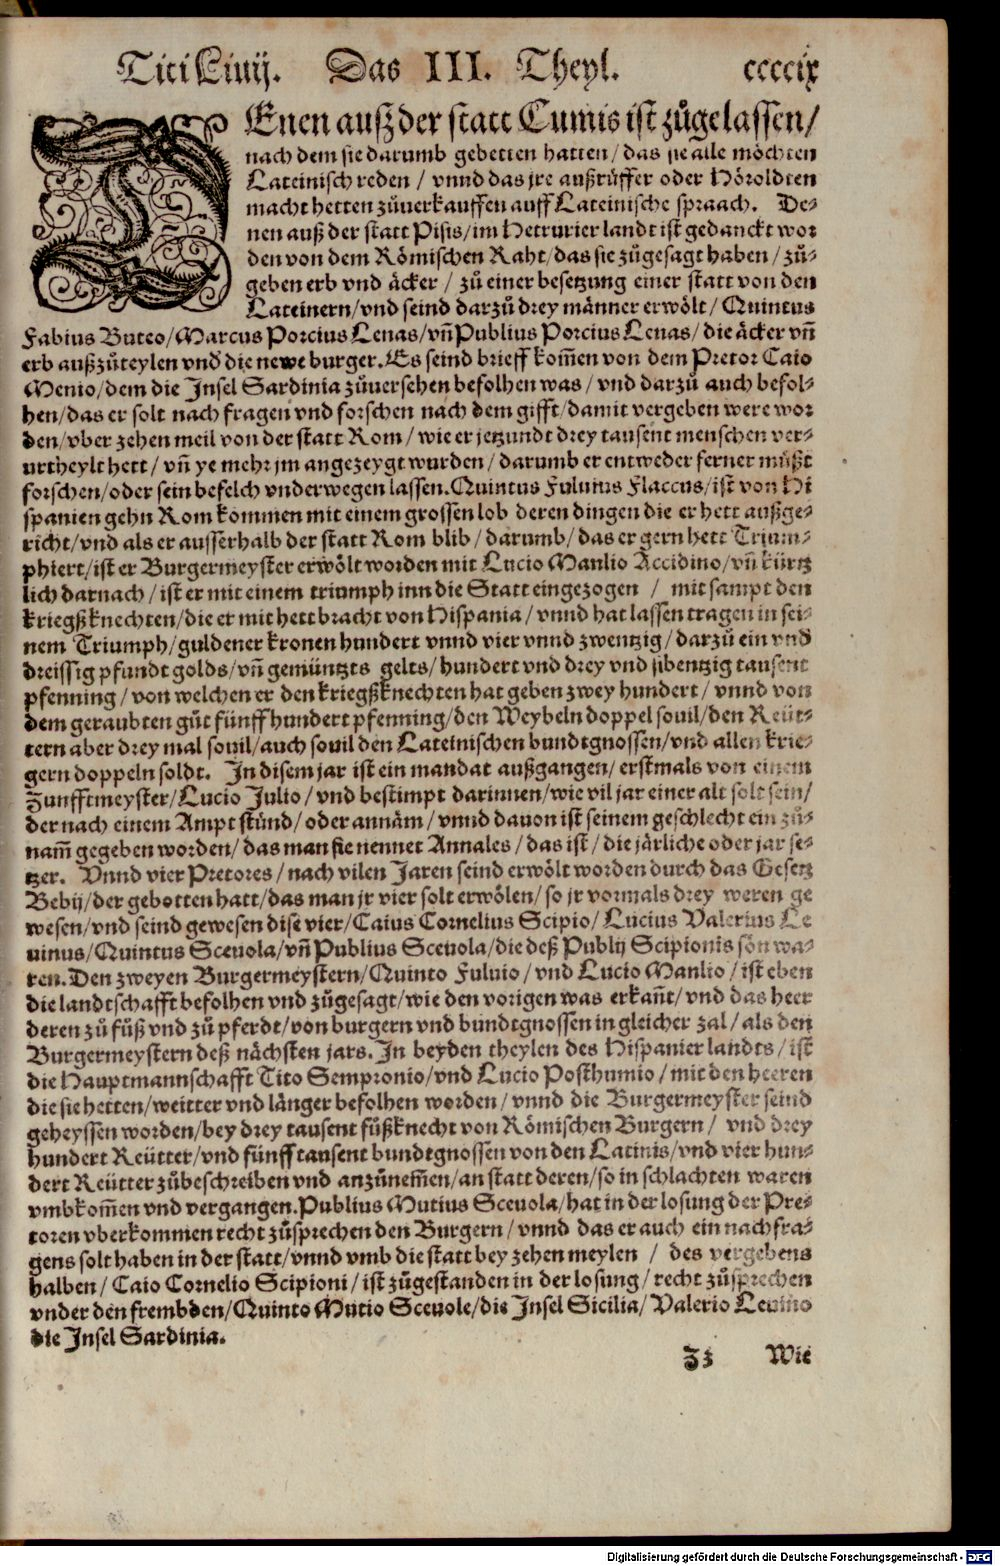 Titi Liuij. Das III. Theyl. ccccix
DEnen auß der statt Cumis ist zůgelassen/
nach dem sie darumb gebetten hatten/ das sie alle möchten
Lateinisch reden/ vnnd das jre außrüffer oder Höroldten
macht hetten zůuerkauffen auff Lateinische spraach. De-
nen auß der statt Pisis/ im Hetrurier landt ist gedanckt wor
den von dem Römischen Raht/ das sie zůgesagt haben/ zů-
geben erb vnd äcker/ zů einer besetzung einer statt von den
Lateinern/ vnd seind darzů drey männer erwölt/ Quintus
Fabius Buteo/ Marcus Porcius Lenas/ vñ Publius Porcius Lenas/ die äcker vñ
erb außzůteylen vnd die newe burger. Es seind brieff kom̃en von dem Pretor Caio
Menio/ dem die Insel Sardinia zůuersehen befolhen was/ vnd darzů auch befol-
hen/ das er solt nach fragen vnd forschen nach dem gifft/ damit vergeben were wor
den/ vber zehen meil von der statt Rom/ wie er jetzundt drey tausent menschen ver-
urtheylt hett/ vñ ye mehr jm angezeygt wurden/ darumb er entweder ferner müßt
forschen/ oder sein befelch vnderwegen lassen. Quintus Fuluius Flaccus/ ist von Hi
spanien gehn Rom kommen mit einem grossen lob deren dingen die er hett außge-
richt/ vnd als er ausserhalb der statt Rom blib/ darumb/ das er gern hett Trium-
phiert/ ist er Burgermeyster erwölt worden mit Lucio Manlio Accidino/ vñ kürtz
lich darnach/ ist er mit einem triumph inn die Statt eingezogen/ mit sampt den
kriegßknechten/ die er mit hett bracht von Hispania/ vnnd hat lassen tragen in sei-
nem Triumph/ guldener kronen hundert vnnd vier vnnd zwentzig/ darzů ein vnd
dreissig pfundt golds/ vñ gemüntzts gelts/ hundert vnd drey vnd sibentzig tausent
pfenning/ von welchen er den kriegßknechten hat geben zwey hundert/ vnnd von
dem geraubten gůt fünff hundert pfenning/ den Weybeln doppel souil/ den Reüt-
tern aber drey mal souil/ auch souil den Lateinischen bundtgnossen/ vnd allen krie-
gern doppeln soldt. In disem jar ist ein mandat außgangen/ erstmals von einem
Zunfftmeyster/ Lucio Julio/ vnd bestimpt darinnen/ wie vil jar einer alt solt sein/
der nach einem Ampt stůnd/ oder annäm/ vnnd dauon ist seinem geschlecht ein zů-
nam̃ gegeben worden/ das man sie nennet Annales/ das ist/ die järliche oder jar se-
tzer. Vnnd vier Pretores/ nach vilen Jaren seind erwölt worden durch das Gesetz
Bebij/ der gebotten hatt/ das man jr vier solt erwölen/ so jr vormals drey weren ge
wesen/ vnd seind gewesen dise vier/ Caius Cornelius Scipio/ Lucius Valerius Le
uinus/ Quintus Sceuola/ vñ Publius Sceuola/ die deß Publij Scipionis sön wa-
ren. Den zweyen Burgermeystern/ Quinto Fuluio/ vnd Lucio Manlio/ ist eben
die landtschafft befolhen vnd zůgesagt/ wie den vorigen was erkañt/ vnd das heer
deren zů fůß vnd zů pferdt/ von burgern vnd bundtgnossen in gleicher zal/ als den
Burgermeystern deß nächsten jars. In beyden theylen des Hispanier landts/ ist
die Hauptmannschafft Tito Sempronio/ vnd Lucio Posthumio/ mit den heeren
die sie hetten/ weitter vnd länger befolhen worden/ vnnd die Burgermeyster seind
geheyssen worden/ bey drey tausent fůßknecht von Römischen Burgern/ vnd drey
hundert Reütter/ vnd fünff tausent bundtgnossen von den Latinis/ vnd vier hun-
dert Reütter zůbeschreiben vnd anzůnem̃en/ an statt deren/ so in schlachten waren
vmbkom̃en vnd vergangen. Publius Mutius Sceuola/ hat in der losung der Pre-
toren vberkommen recht zůsprechen den Burgern/ vnnd das er auch ein nachfra-
gens solt haben in der statt/ vnnd vmb die statt bey zehen meylen/ des vergebens
halben/ Caio Cornelio Scipioni/ ist zůgestanden in der losung/ recht zůsprechen
vnder den frembden/ Quinto Mutio Sceuole/ die Insel Sicilia/ Valerio Leuino
die Insel Sardinia.
Zz Wie
Digitalisierung gefördert durch die Deutsche Forschungsgemeinschaft - DFG